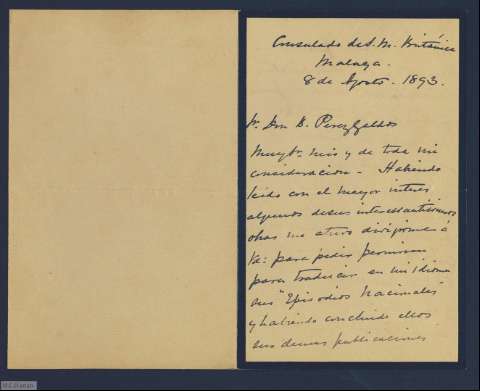 Consulado de S. M. Británica
Malaga.
8 de Agosto. 1893.
Sr. Don B. Perez Galdos
Muy Sr. mio y de toda mi
consideracion - Habiendo
leido con el mayor interes
algunos de sus interesantisimos
obras me atrevo dirigirme á
Vd: para pedir permiso
para traducir en mi idioma
sus "Episodios Nacionales"
y habiendo concluido ellos
sus demas publicaciones